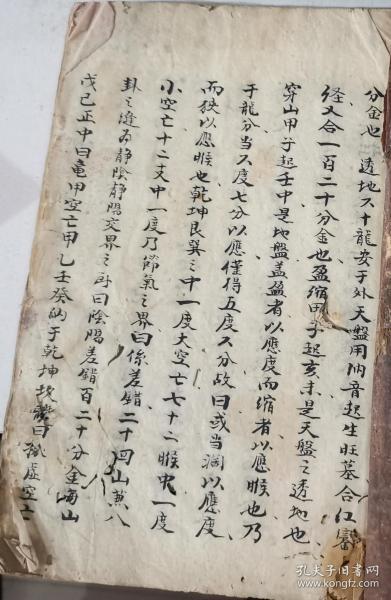 分金也 透地六十龍安于外天盤用納音起生旺墓合江
経又合一百二十分金也盈縮甲子起亥末是天盤之透地也
穿山甲子起壬中是地盤盖盈者以應度而缩者以應睺也乃
于龍分当六度七分以應僅得五度六分故曰或当濶以應度
而狭以應睺也乾坤艮巽之中一度大空亡七十二睺中一度
小空亡十二丈中一度乃節氣之界曰係差錯二十四山兼八
卦之縫為静陰静陽交界之所曰陰陽差錯百二十分金每山
戊己正中曰亀甲空亡甲乙壬癸納于乾坤故曰孤虛空亡
孔夫子旧书网
www.kongfz.com